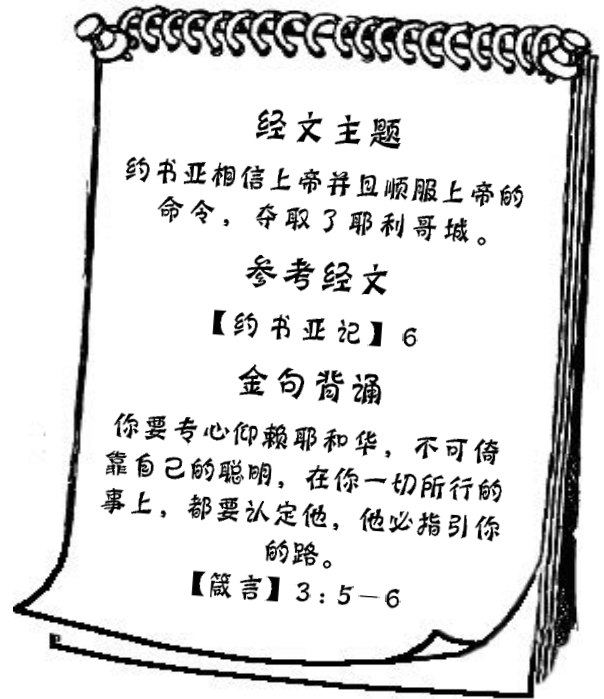 经文主题
约书亚相信上帝并且顺服上帝的
命令，夺取了耶利哥城。
参考经文
【约书亚记】6
金句背诵
你要专心仰赖耶和华，不可倚
靠自己的聪明，在你一切所行的
事上，都要认定他，他必指引你
的路。
【箴言】3：5－6